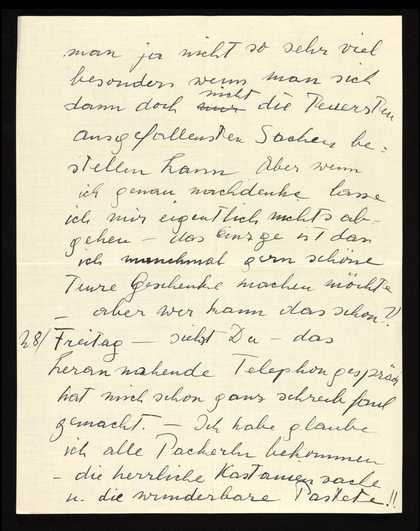 man ja nicht so sehr viel
besonders wenn man sich
nicht
dann doch nur die Teuersten
ausgefallensten Sachen be=
stellen kann Aber wenn
ich genau nachdenke lasse
ich mir eigentlich nichts ab-
gehen – das einzge ist das
ich manchmal gern schöne
Teure Geschenke machen möchte
– aber wer kann das schon?!
28/ Freitag – siehst Du – das
heran nahende Telephongespräch
hat mich schon ganz schreib faul
gemacht. – Ich habe glaube
ich alle Packerln bekommen
– die herrliche Kastaniensache
u. die wunderbare Pastete!!